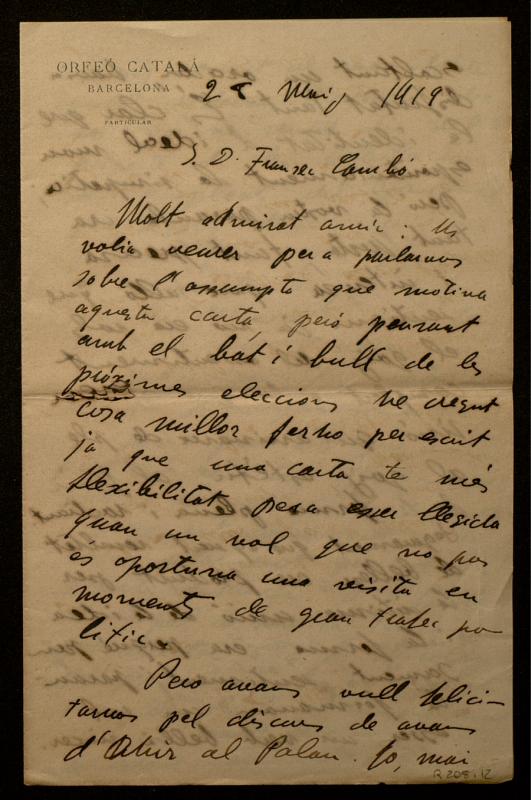 ORFEÓ CATALÁ
BARCELONA
PARTICULAR
28 Maig 1919
S. D. Francesc Cambó
Molt admirat amic: Us
volia veurer per a parlarvos
sobre l'assumpta que motiva
aquesta carta, peró pensant
amb el bat i bull de les
próximes eleccions he cregut
cosa millor ferho per escrit
ja que una carta te més
flexibilitat pera esser llegida
quan un vol que no pas
és oportuna una visita en
moments de gran trafec po-
litic.
Pero avans vull felici-
tarvos pel discurs de avans
d'Ahir al Palau. Jo, mai
R 208.12